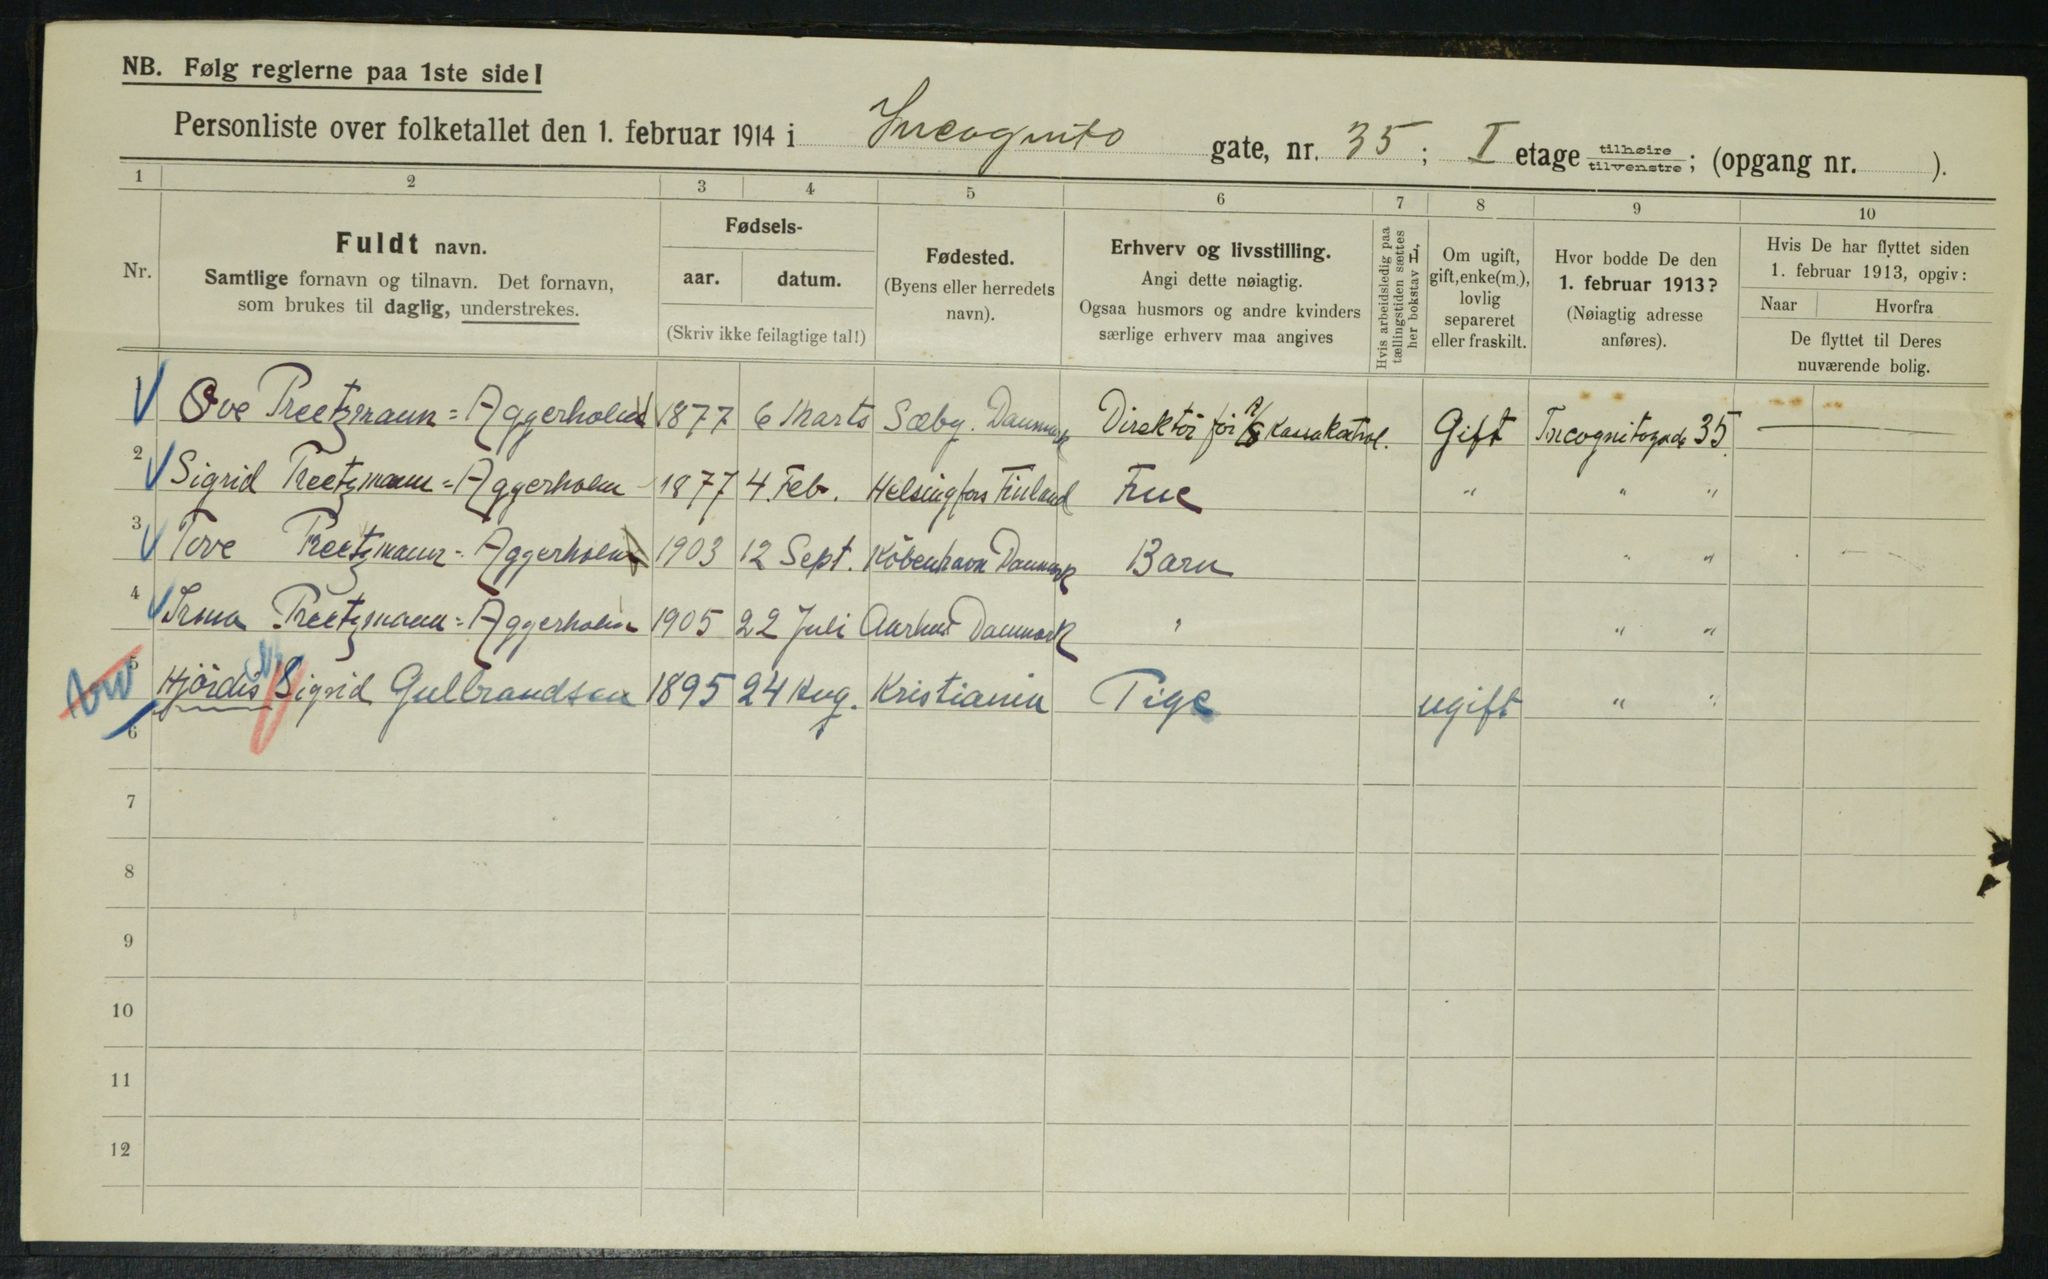 NB. Følg reglerne paa 1ste side!
Personliste over folketallet den 1. februar 1914 i Incognito gate, nr. 35; I etage tilhøire tilvenstre; (opgang nr. ).
1 2 3 4 5 6 7 8 9 10
Nr.
Fuldt navn.
Samtlige fornavn og tilnavn. Det fornavn,
som brukes til daglig, understrekes.
Fødsels-
aar. datum.
(Skriv ikke feilagtige tal!)
Fødested.
(Byens eller herredets
navn).
Erhverv og livsstilling.
Angi dette nøiagtig.
Ogsaa husmors og andre kvinders
særlige erhverv maa angives
Hvis arbeidsledig paa
tællingstiden sættes
her bokstav L.
Om ugift,
gift, enke(m.),
lovlig
separeret
eller fraskilt.
Hvor bodde De den
1. februar 1913?
(Nøiagtig adresse
anføres).
Hvis De har flyttet siden
1. februar 1913, opgiv:
Naar Hvorfra
De flyttet til Deres
nuværende bolig.
1 Ove Preetzmann=Aggerholm 1877 6 Marts Sæby. Danmark Direktör for A/S Kassakontrol. Gift Incognitogade 35. —
2 Sigrid Preetzmann=Aggerholm 1877 4. Feb. Helsingfors Finland Frue " " "
3 Tove Preetzmann=Aggerholm 1903 12 Sept. Köbenhavn Danmark Barn " "
4 Irma Preetzmann=Aggerholm 1905 22 Juli Aarhus Danmark " " "
5 Hjördis Sigrid Gulbrandsen 1895 24 Aug. Kristiania Pige ugift " "
6
7
8
9
10
11
12